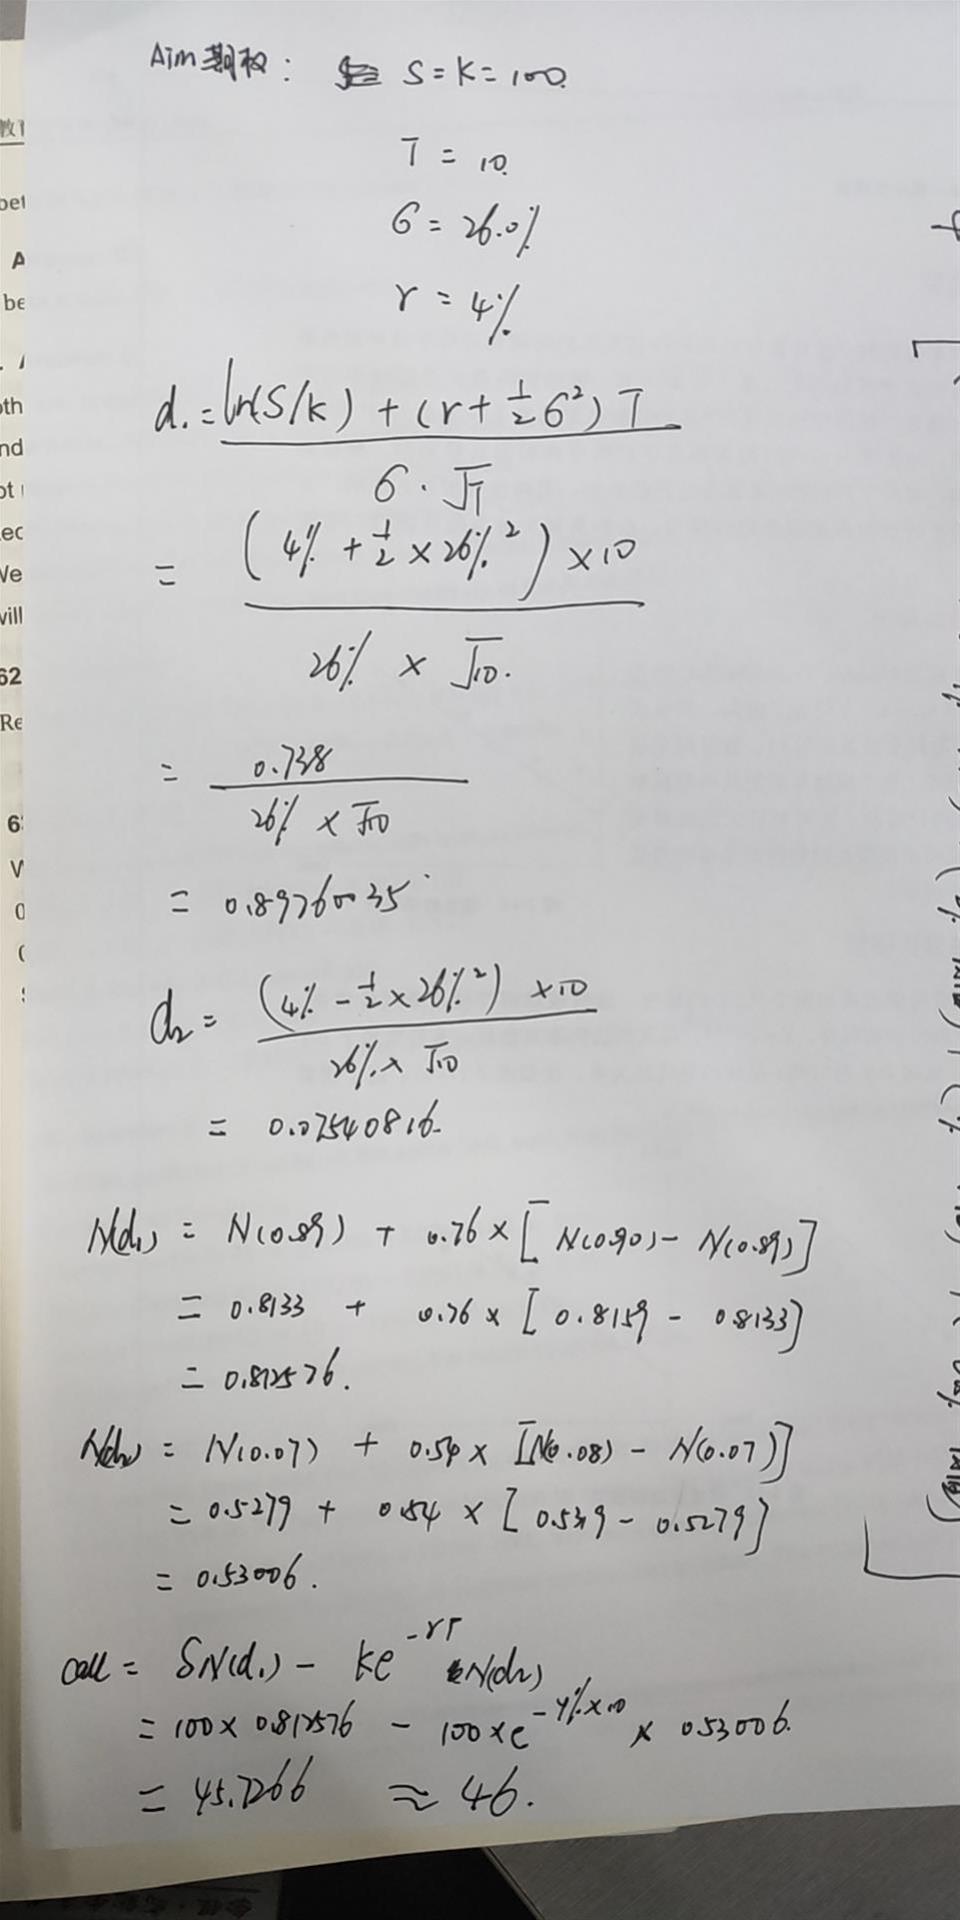 Aim期权: S=K=100.
T = 10.
σ = 26.0%
r = 4%
d₁ = ln(S/K) + (r + ½σ²)T
σ · √T
= (4% + ½ × 26%²) × 10
26% × √10.
= 0.738
26% × √10
= 0.8976035
d₂ = (4% - ½ × 26%²) × 10
26% × √10
= 0.07540816.
N(d₁) = N(0.89) + 0.76 × [N(0.90) - N(0.89)]
= 0.8133 + 0.76 × [0.8159 - 0.8133]
= 0.812576.
N(d₂) = N(0.07) + 0.54 × [N(0.08) - N(0.07)]
= 0.5279 + 0.54 × [0.5319 - 0.5279]
= 0.53006.
call = SN(d₁) - Ke^(-rT) N(d₂)
= 100 × 0.812576 - 100 × e^(-4%×10) × 0.53006.
= 45.7266 ≈ 46.
教育
bet
A
be
oth
nd
We
will
62
Re